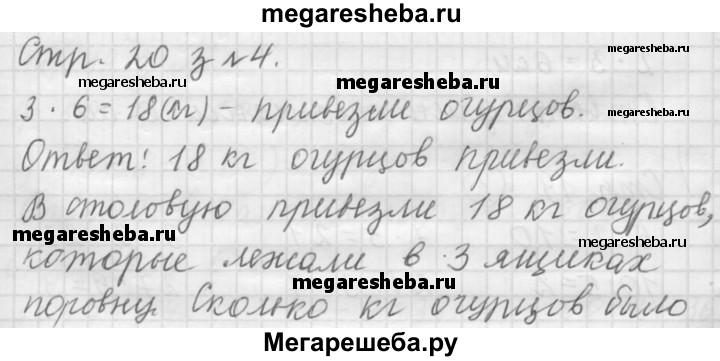 megaresheba.ru
Стр. 20 з №4. megaresheba.ru
megaresheba.ru megaresheba.ru
3 · 6 = 18 (кг) – привезли огурцов. megaresheba.ru
Ответ: 18 кг огурцов привезли.
В столовую привезли 18 кг огурцов,
megaresheba.ru megaresheba.ru
которые лежали в 3 ящиках
поровну. Сколько кг огурцов было
Мегарешеба.ру